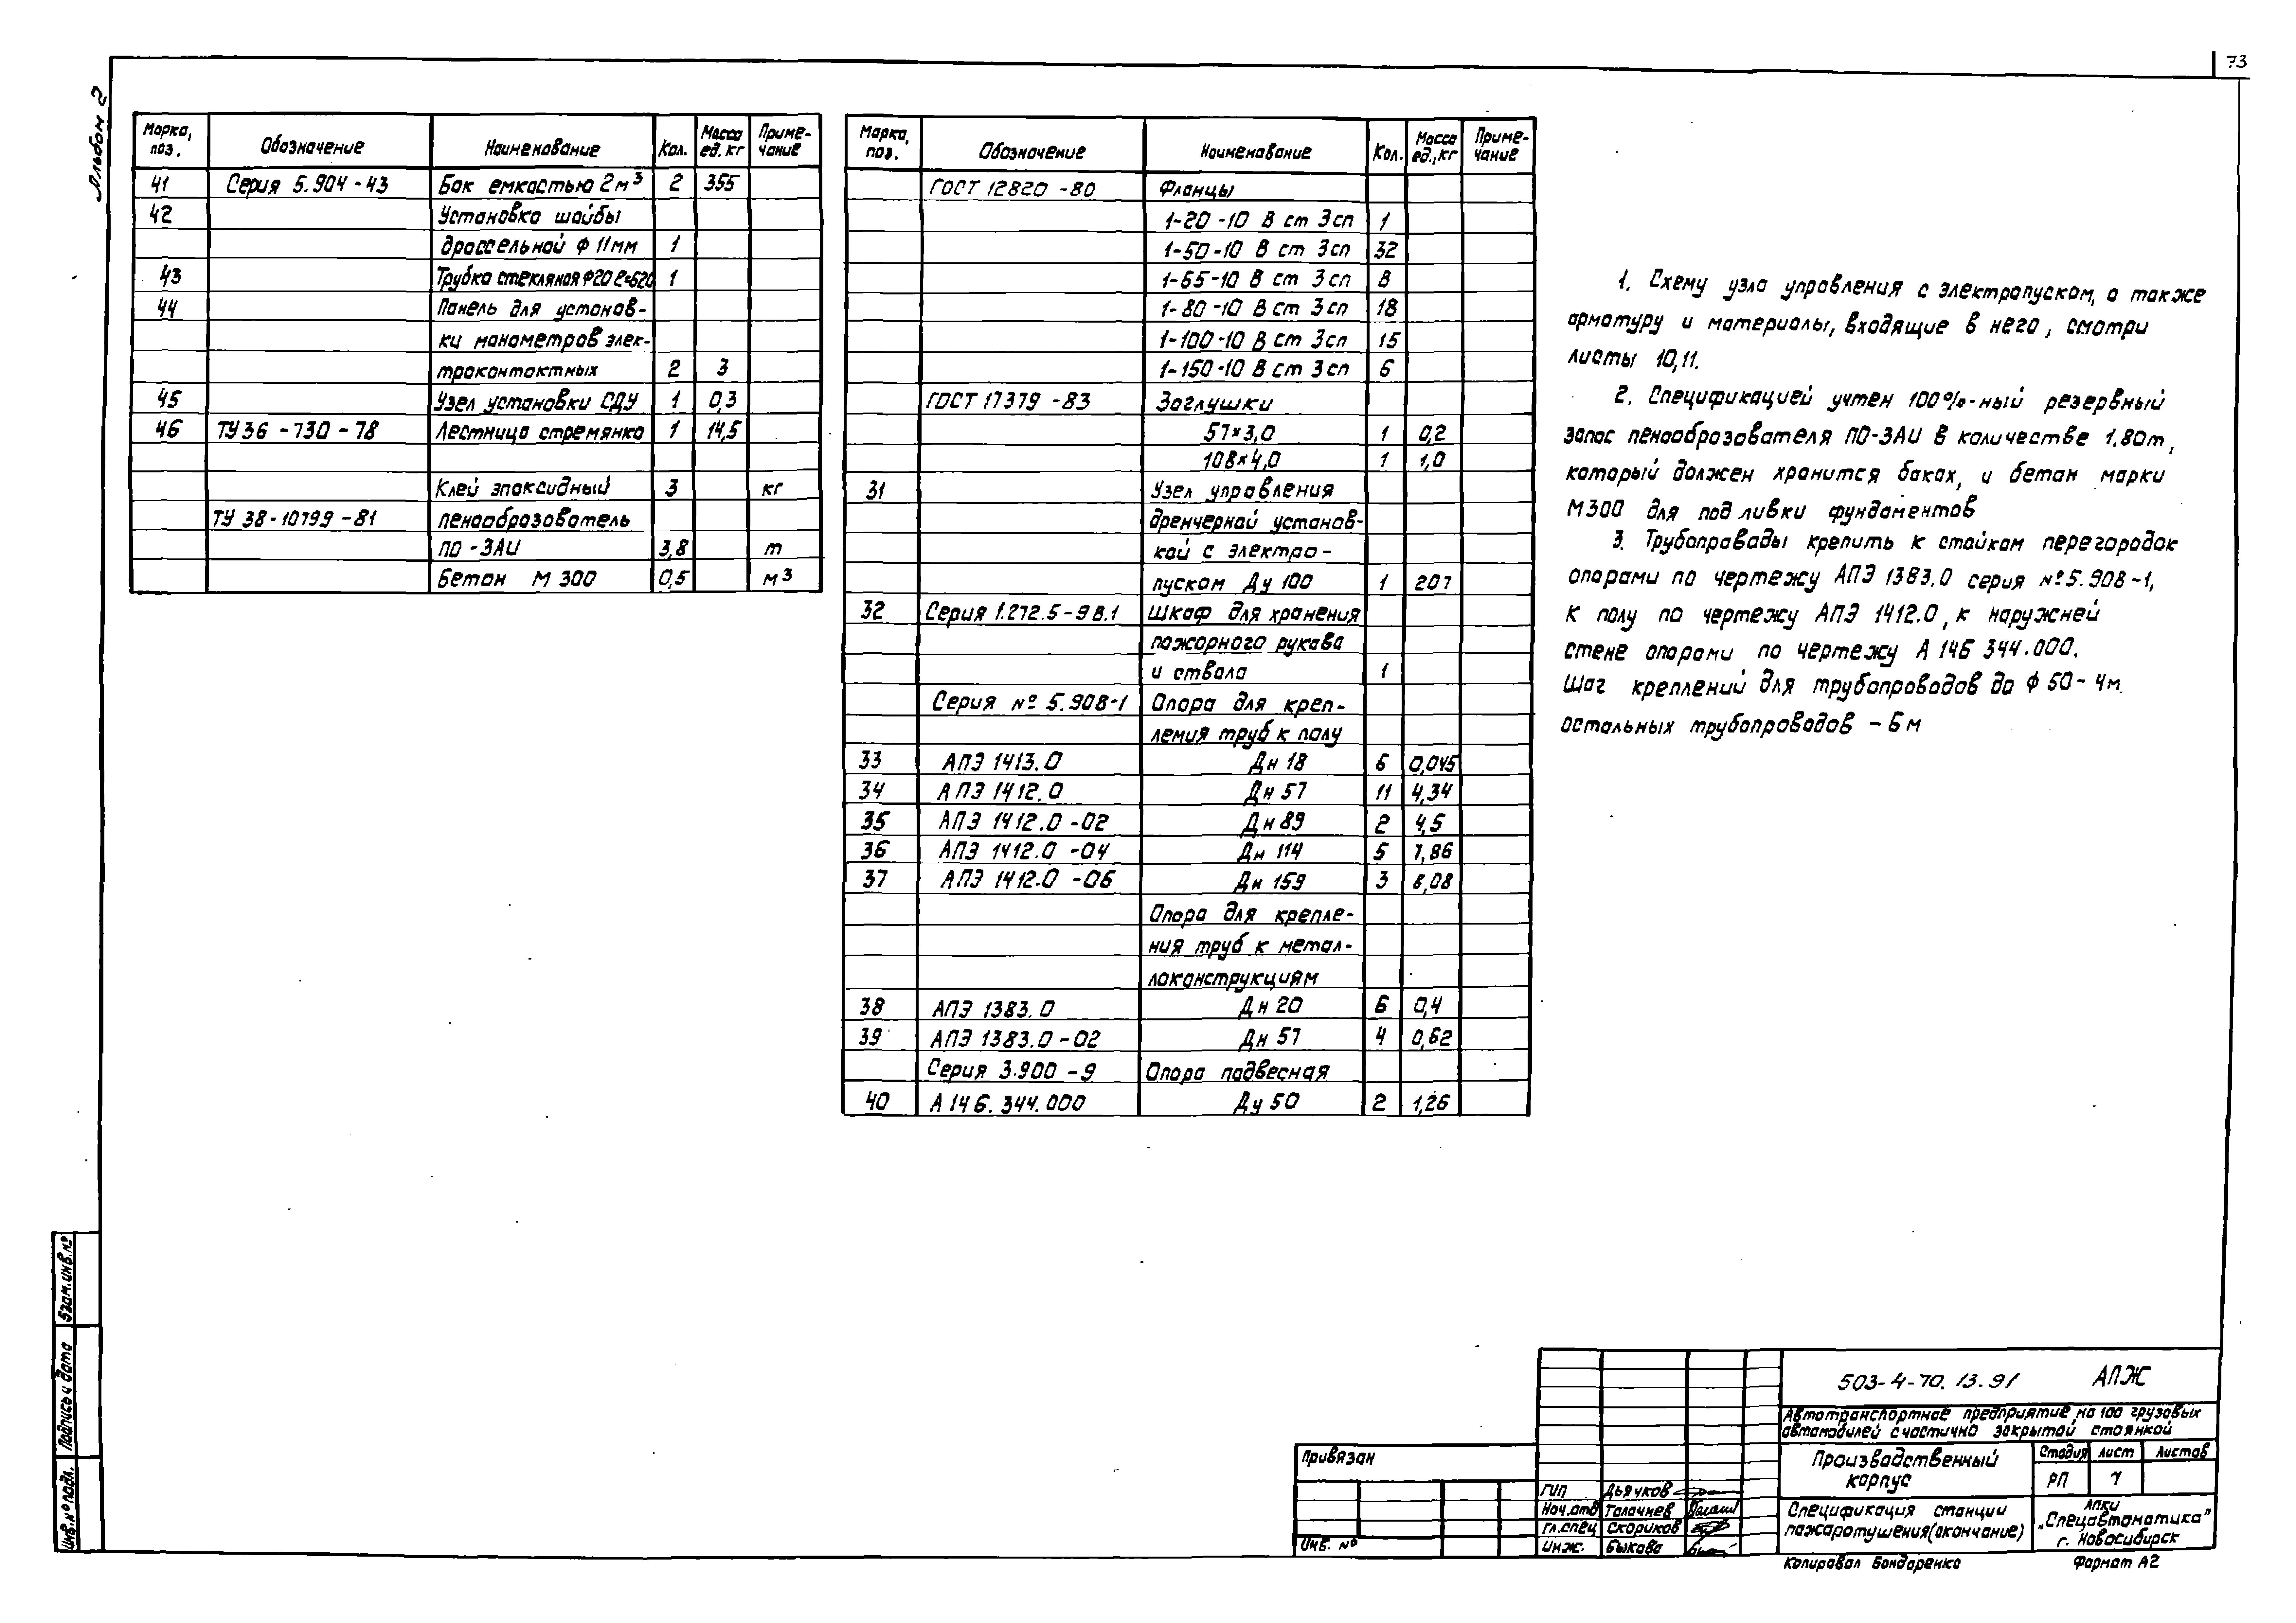 73
Альбом 2
Марка, поз. Обозначение Наименование Кол. Масса ед. кг Приме-чание
41 Серия 5.904-43 Бак емкостью 2м³ 2 355
42 Установка шайбы
дроссельной Ф 11мм 1
43 Трубка стекляная Ф20 ℓ=620 1
44 Панель для установ-
ки манометров элек-
троконтактных 2 3
45 Узел установки СДУ 1 0,3
46 ТУ36-730-78 Лестница стремянка 1 14,5
Клей эпоксидный 3 кг
ТУ 38-10799-81 пенообразователь
ПО-3АИ 3,8 т
Бетон М 300 0,5 м³
Марка, поз. Обозначение Наименование Кол. Масса ед., кг Приме-чание
ГОСТ 12820-80 Фланцы
1-20-10 В ст 3сп 1
1-50-10 В ст 3сп 32
1-65-10 В ст 3сп 8
1-80-10 В ст 3сп 18
1-100-10 В ст 3сп 15
1-150-10 В ст 3сп 6
ГОСТ 17379-83 Заглушки
57×3,0 1 0,2
108×4,0 1 1,0
31 Узел управления
дренчерной установ-
кой с электро-
пуском Ду 100 1 207
32 Серия 1.272.5-9В.1 Шкаф для хранения
пожарного рукава
и ствола 1
Серия № 5.908-1 Опора для креп-
лемия труб к полу
33 АПЭ 1413.0 Дн 18 6 0,045
34 АПЭ 1412.0 Дн 57 11 4,34
35 АПЭ 1412.0-02 Дн 89 2 4,5
36 АПЭ 1412.0-04 Дн 114 5 7,86
37 АПЭ 1412.0-06 Дн 159 3 8,08
Опора для крепле-
ния труб к метал-
локонструкциям
38 АПЭ 1383.0 Дн 20 6 0,4
39 АПЭ 1383.0-02 Дн 57 4 0,62
Серия 3.900-9 Опора подвесная
40 А 14Б.344.000 Ду 50 2 1,26
1. Схему узла управления с электропуском, а также
арматуру и материалы, входящие в него, смотри
листы 10,11.
2. Спецификацией учтен 100%-ный резервный
запас пенообразователя ПО-3АИ в количестве 1,80т,
который должен хранится баках, и бетон марки
М300 для подливки фундаментов
3. Трубопроводы крепить к стойкам перегородок
опорами по чертежу АПЭ 1383.0 серия №5.908-1,
к полу по чертежу АПЭ 1412.0, к наружней
стене опорами по чертежу А 14Б 344.000.
Шаг креплений для трубопроводов до Ф 50-4м.
остальных трубопроводов - 6м
Взам.инв.№
Подпись и дата
Инв.№ подл.
503-4-70.13.91 АПЖ
Автотранспортное предприятие на 100 грузовых
автомобилей с частично закрытой стоянкой
Производственный
корпус
Стадия Лист Листов
РП 7
Спецификация станции
пожаротушения (окончание)
АПКИ
„Спецавтоматика"
г. Новосибирск
Привязан
Инв. №
ГИП Дьячков
Нач.отд Толочнев
Гл.спец Скориков
Инж. Быкова
Копировал Бондаренко Формат А2